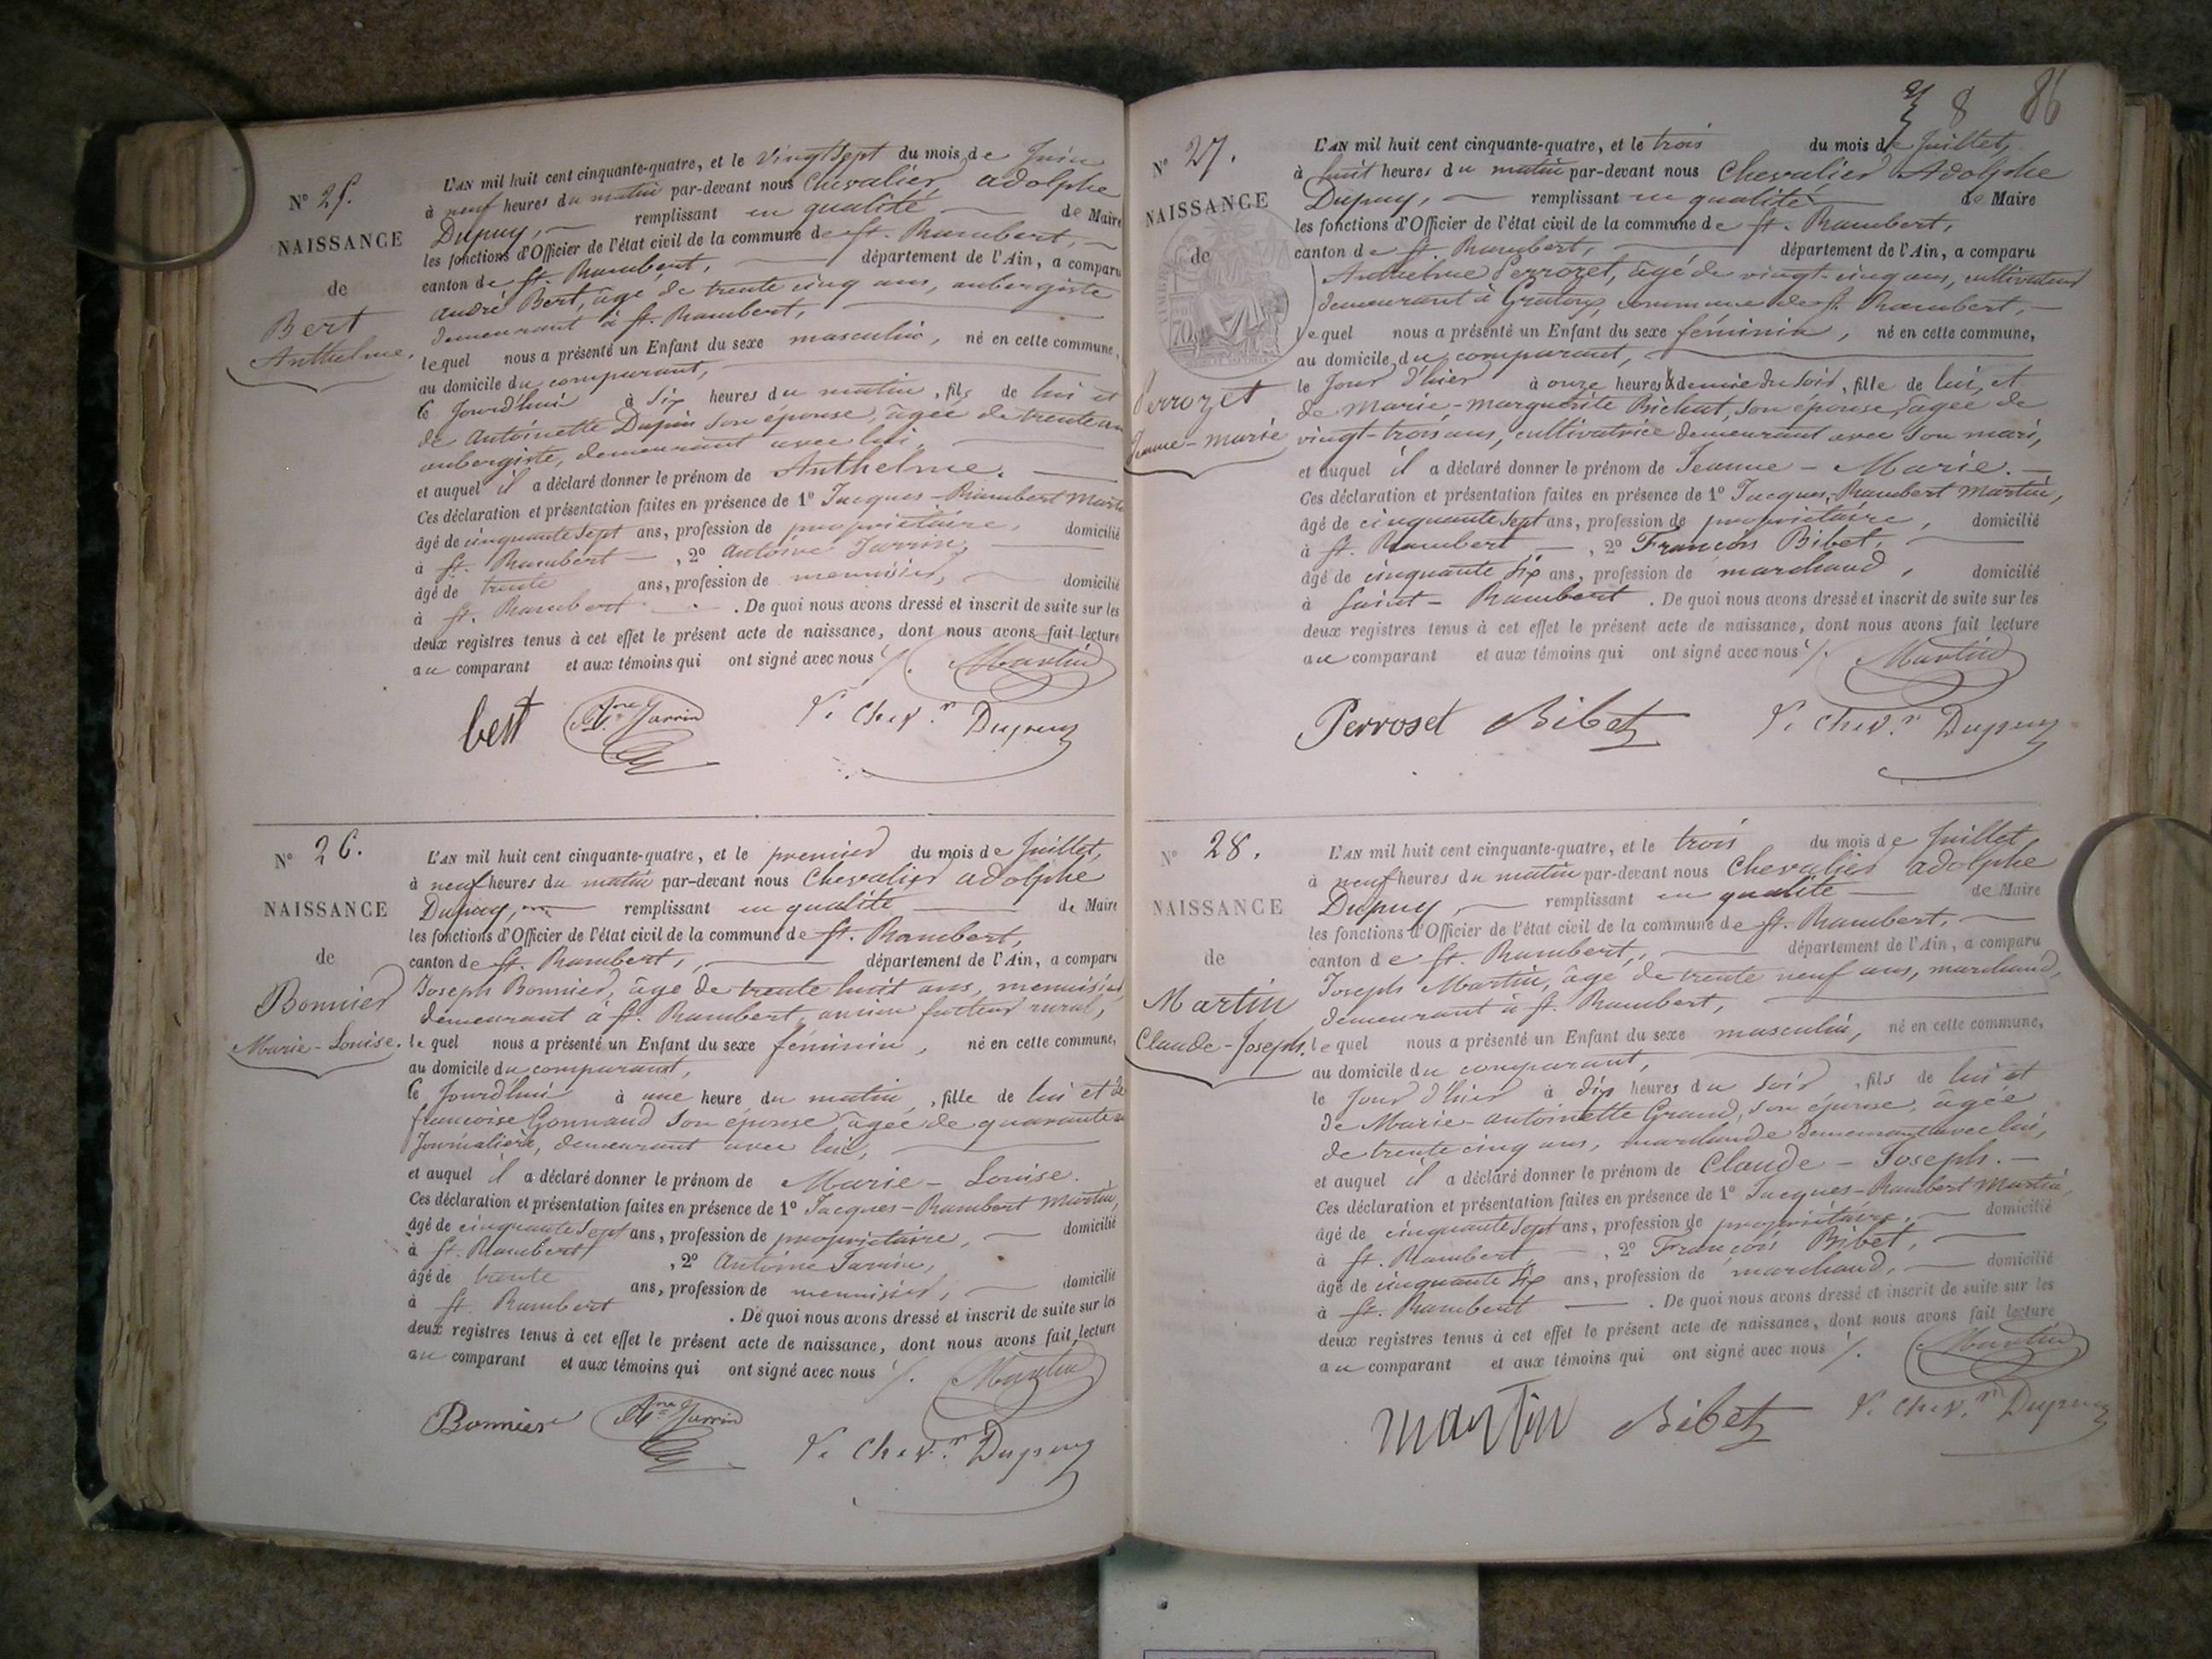 N° 25.
NAISSANCE
de
Bert
Anthelme.
L'AN mil huit cent cinquante-quatre, et le vingt sept du mois de Juin
à neuf heures du matin par-devant nous Chevalier adolphe
Dupuy, remplissant en qualité de Maire
les fonctions d'Officier de l'état civil de la commune de St. Rambert,
canton de St. Rambert, département de l'Ain, a comparu
andré Bert, âgé de trente cinq ans, aubergiste
demeurant à St. Rambert,
lequel nous a présenté un Enfant du sexe masculin, né en cette commune,
au domicile du comparant,
le Jourd'hui à six heures du matin, fils de lui et
de Antoinette Dupin son épouse, âgée de trente an
aubergiste, demeurant avec lui,
et auquel il a déclaré donner le prénom de Anthelme.
Ces déclaration et présentation faites en présence de 1° Jacques-Rambert Martin
âgé de cinquante sept ans, profession de propriétaire, domicilié
à St. Rambert, 2° antoine Jarrin,
âgé de trente ans, profession de menuisier, domicilié
à St. Rambert. De quoi nous avons dressé et inscrit de suite sur les
deux registres tenus à cet effet le présent acte de naissance, dont nous avons fait lecture
au comparant et aux témoins qui ont signé avec nous ./. Martin
bert Ane Jarrin V. Chev.r Dupuy
N° 26.
NAISSANCE
de
Bonnier
Marie-Louise.
L'AN mil huit cent cinquante-quatre, et le premier du mois de Juillet,
à neuf heures du matin par-devant nous Chevalier adolphe
Dupuy, remplissant en qualité de Maire
les fonctions d'Officier de l'état civil de la commune de St. Rambert,
canton de St. Rambert, département de l'Ain, a comparu
Joseph Bonnier, âgé de trente huit ans, menuisier,
demeurant à St. Rambert, ancien facteur rural,
lequel nous a présenté un Enfant du sexe féminin, né en cette commune,
au domicile du comparant,
le Jourd'hui à une heure du matin, fille de lui et de
francoise Gonnand son épouse, âgée de quarante an
Journalière, demeurant avec lui,
et auquel il a déclaré donner le prénom de Marie-Louise.
Ces déclaration et présentation faites en présence de 1° Jacques-Rambert Martin,
âgé de cinquante sept ans, profession de propriétaire, domicilié
à St. Rambert, 2° Antoine Jarrin,
âgé de trente ans, profession de menuisier, domicilié
à St. Rambert. De quoi nous avons dressé et inscrit de suite sur les
deux registres tenus à cet effet le présent acte de naissance, dont nous avons fait lecture
au comparant et aux témoins qui ont signé avec nous ./. Martin
Bonnier Ane Jarrin V. Chev.r Dupuy
8 86
N° 27.
NAISSANCE
de
Perrozet
Jeanne-Marie
L'AN mil huit cent cinquante-quatre, et le trois du mois de Juillet,
à huit heures du matin par-devant nous Chevalier Adolphe
Dupuy, remplissant en qualité de Maire
les fonctions d'Officier de l'état civil de la commune de St. Rambert,
canton de St. Rambert, département de l'Ain, a comparu
Anthelme Perrozet, âgé de vingt-cinq ans, cultivateur
demeurant à Gratoux, commune de St. Rambert,
lequel nous a présenté un Enfant du sexe féminin, né en cette commune,
au domicile du comparant,
le Jour d'hier à onze heures & demie du soir, fille de lui, et
de Marie-Marguerite Bichat, son épouse, âgée de
vingt-trois ans, cultivatrice demeurant avec son mari,
et auquel il a déclaré donner le prénom de Jeanne-Marie.
Ces déclaration et présentation faites en présence de 1° Jacques, Rambert Martin,
âgé de cinquante sept ans, profession de propriétaire, domicilié
à St. Rambert, 2° François Bibet,
âgé de cinquante six ans, profession de marchand, domicilié
à Saint-Rambert. De quoi nous avons dressé et inscrit de suite sur les
deux registres tenus à cet effet le présent acte de naissance, dont nous avons fait lecture
au comparant et aux témoins qui ont signé avec nous ./. Martin
Perroset Bibet V. Chev.r Dupuy
N° 28.
NAISSANCE
de
Martin
Claude-Joseph.
L'AN mil huit cent cinquante-quatre, et le trois du mois de Juillet
à neuf heures du matin par-devant nous Chevalier adolphe
Dupuy, remplissant en qualité de Maire
les fonctions d'Officier de l'état civil de la commune de St. Rambert,
canton de St. Rambert, département de l'Ain, a comparu
Joseph Martin, âgé de trente neuf ans, marchand,
demeurant à St. Rambert,
lequel nous a présenté un Enfant du sexe masculin, né en cette commune,
au domicile du comparant,
le Jour d'hier à dix heures du soir, fils de lui et
de Marie-antoinette Grand, son épouse, âgée
de trente cinq ans, marchande demeurant avec lui,
et auquel il a déclaré donner le prénom de Claude-Joseph.
Ces déclaration et présentation faites en présence de 1° Jacques-Rambert Martin,
âgé de cinquante sept ans, profession de propriétaire, domicilié
à St. Rambert, 2° François Bibet,
âgé de cinquante six ans, profession de marchand, domicilié
à St. Rambert. De quoi nous avons dressé et inscrit de suite sur les
deux registres tenus à cet effet le présent acte de naissance, dont nous avons fait lecture
au comparant et aux témoins qui ont signé avec nous ./. Martin
martin Bibet V. Chev.r Dupuy